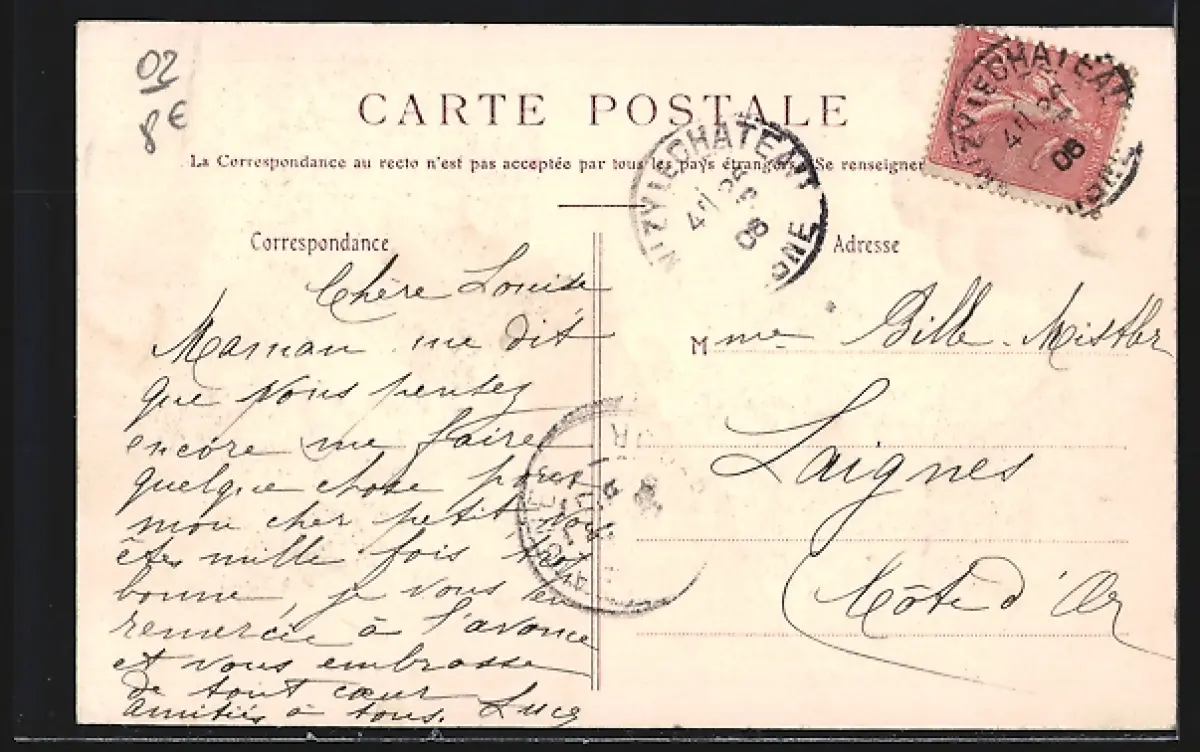 02
8€
CARTE POSTALE
La Correspondance au recto n'est pas acceptée par tous les pays étrangers. Se renseigner
Correspondance
Adresse
VIC/VIZYLECHATEAU
Chère Louise
Maman me dit
que Vous pensez
encore me faire
quelque chose pour
mon cher petit Vous
êtes mille fois trop
bonne, je vous en
remercie à l'avance
et vous embrasse
de tout cœur
amitiés à tous. Luce
Mme Bille-Mistler
Laignes
Côte d'Or